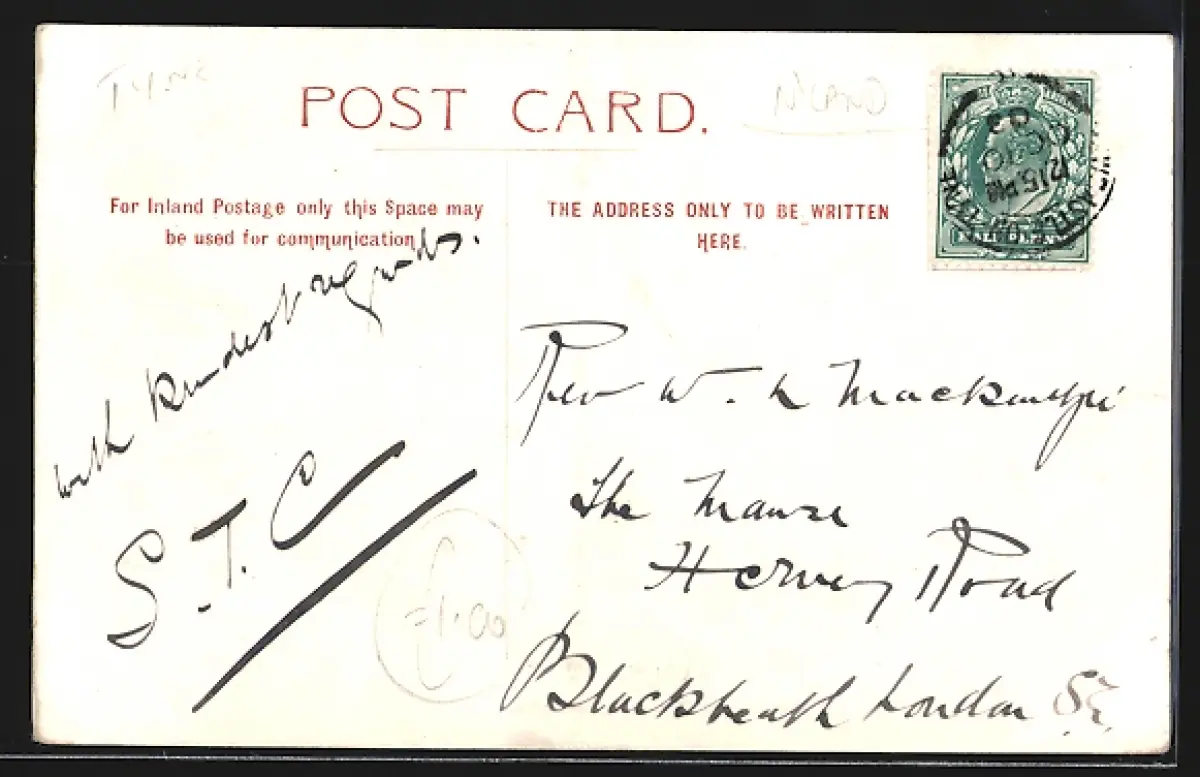 TYNE
POST CARD.
N'LAND
For Inland Postage only this Space may
be used for communication
THE ADDRESS ONLY TO BE WRITTEN
HERE.
with kindest regards.
S.T.C
Rev W. L Mackenzie
The Manse
Hervey Road
Blackheath London SE.
1.00
12 15 PM
HALFPENNY